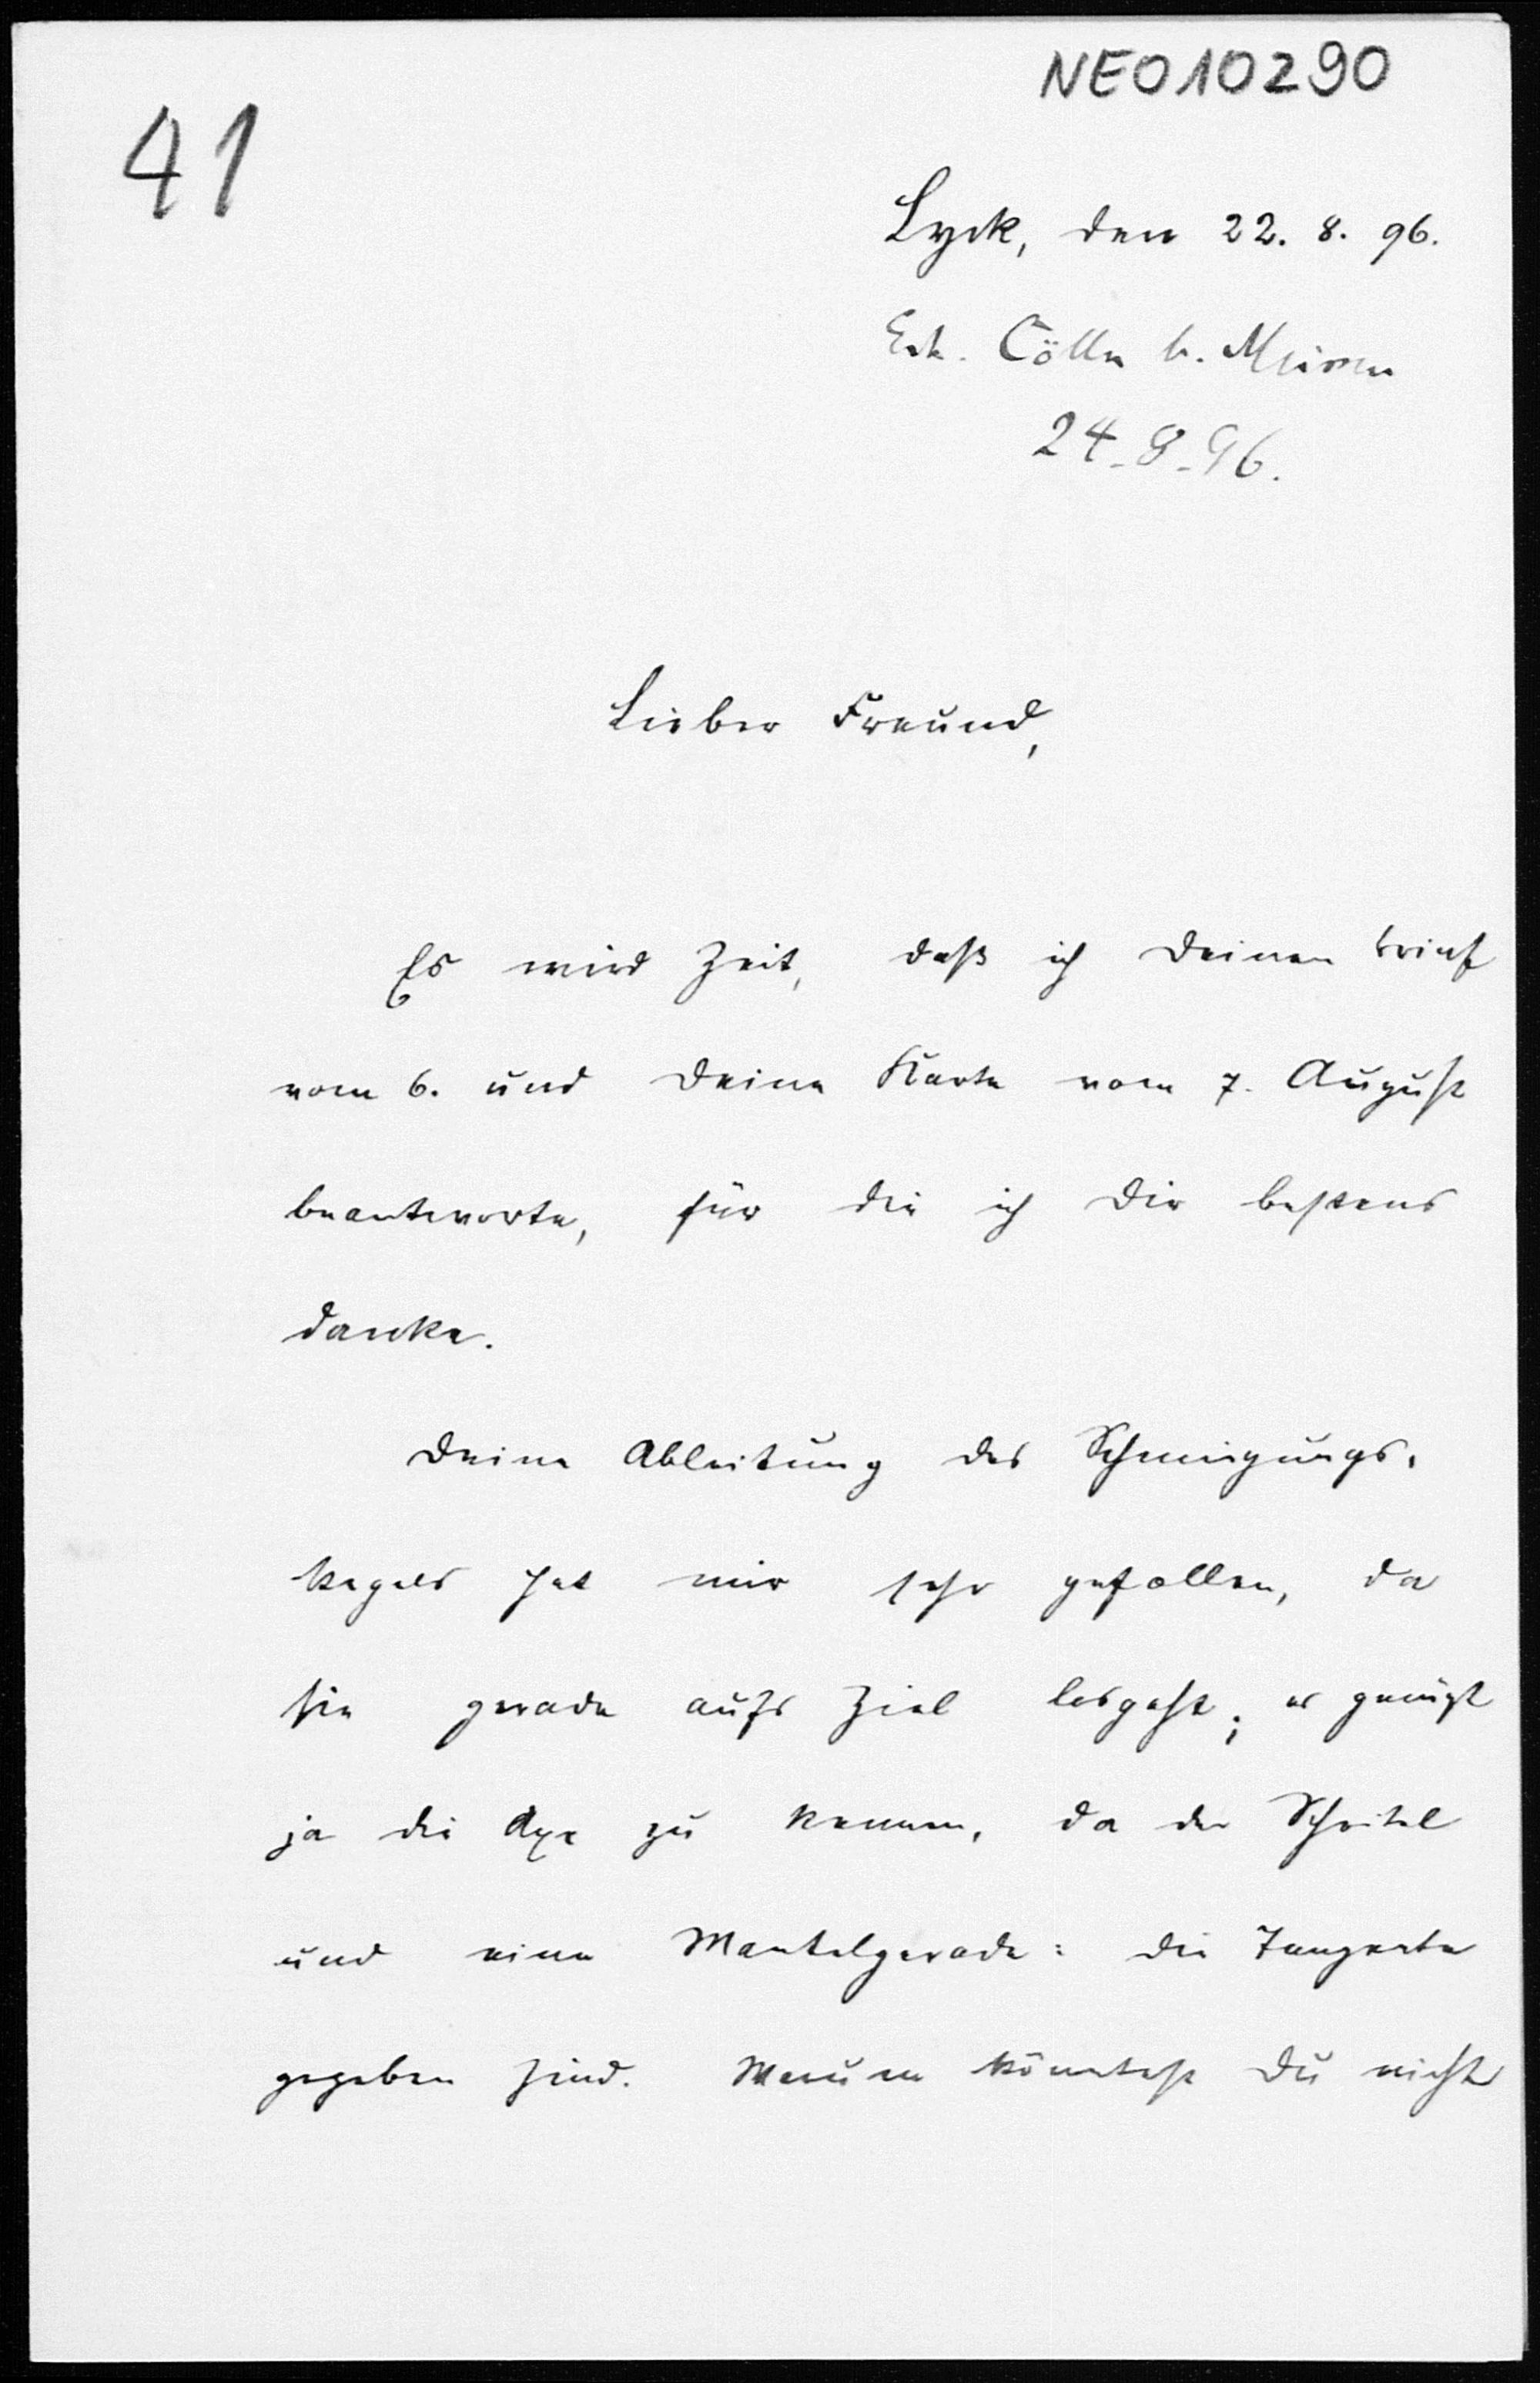 NEO10290
41
Lyck, den 22. 8. 96.
Erh. Cölln b.
24-8-96.
Lieber Freund,
Es wird Zeit, daß ich Deinen Brief
vom 6. und Deine Karte vom 7. August
beantworte, für die ich Dir bestens
danke.
Deine Ableitung des Schmiegungs-
kegels hat mir sehr gefallen, da
sie gerade aufs Ziel losgeht; es genügt
ja die Axe zu kennen, da der Scheitel
und eine Mantelgerade: die Tangente
gegeben sind. Warum könntest Du nicht